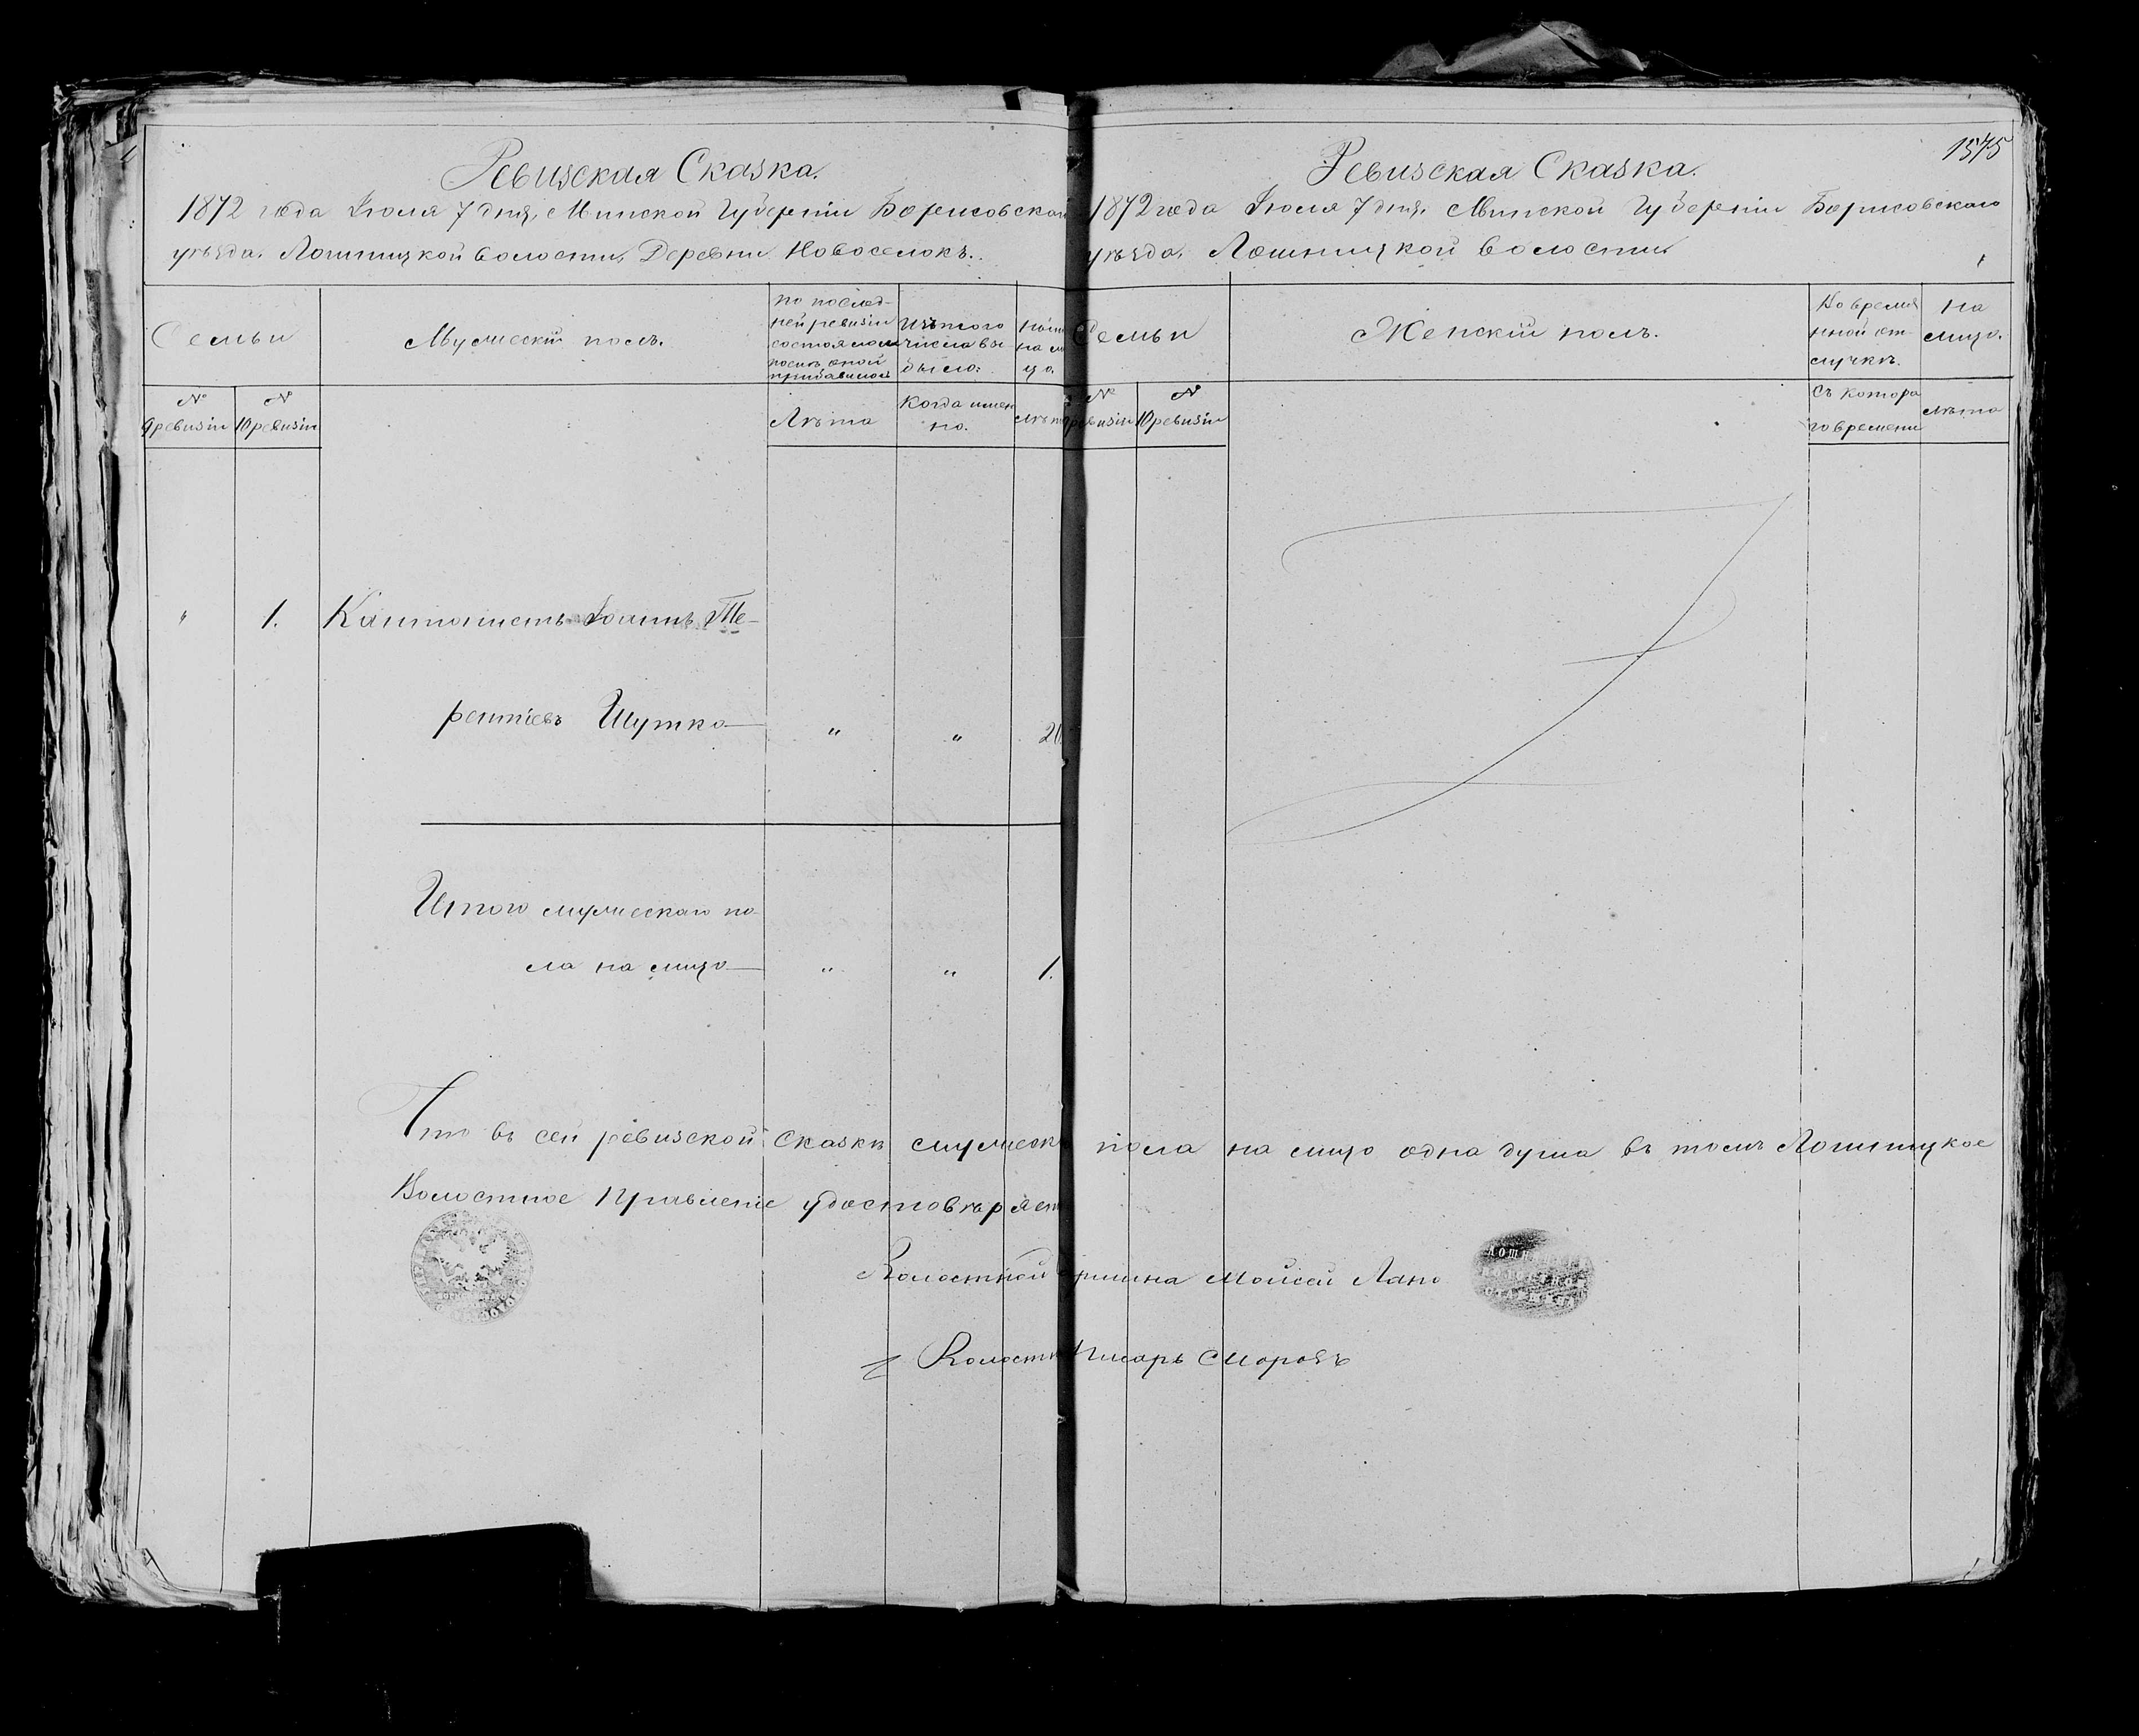 Ревизская Сказка.
1872 года Іюля 7 дня, Минской Губерніи Борисовскаго
уѣзда. Лошницкой волости, Деревни Новоселокъ.
Семьи
Мужескій полъ.
по послед-
ней ревизіи
состояло и
послѣ оной
прибавилось
Изъ того
числа вы
было.
на ли
цо.
№
9 ревизіи
№
10 ревизіи
Лѣта
Когда имен
но.
Лѣта
" 1. Кантонистъ Іоаннъ Те-
рентіевъ Шутко — " " 20
Итого мужескаго по-
ла на лицо — " " 1.
Ревизская Сказка.
1575
1872 года Іюля 7 дня, Минской Губерніи Борисовскаго
уѣзда, Лошницкой волости
Семьи
Женскій полъ.
Во времен
нной от-
лучкѣ.
На
лицо.
№
9 ревизіи
№
10 ревизіи
Съ котора
го времени
Лѣта
Что въ сей ревизской Сказкѣ мужеска пола на лицо одна душа въ томъ Лошницкое
Волостное Правленіе удостовѣряетъ
Волостной Старшина Мойсей Лапо
Волостн Писарь Морозъ